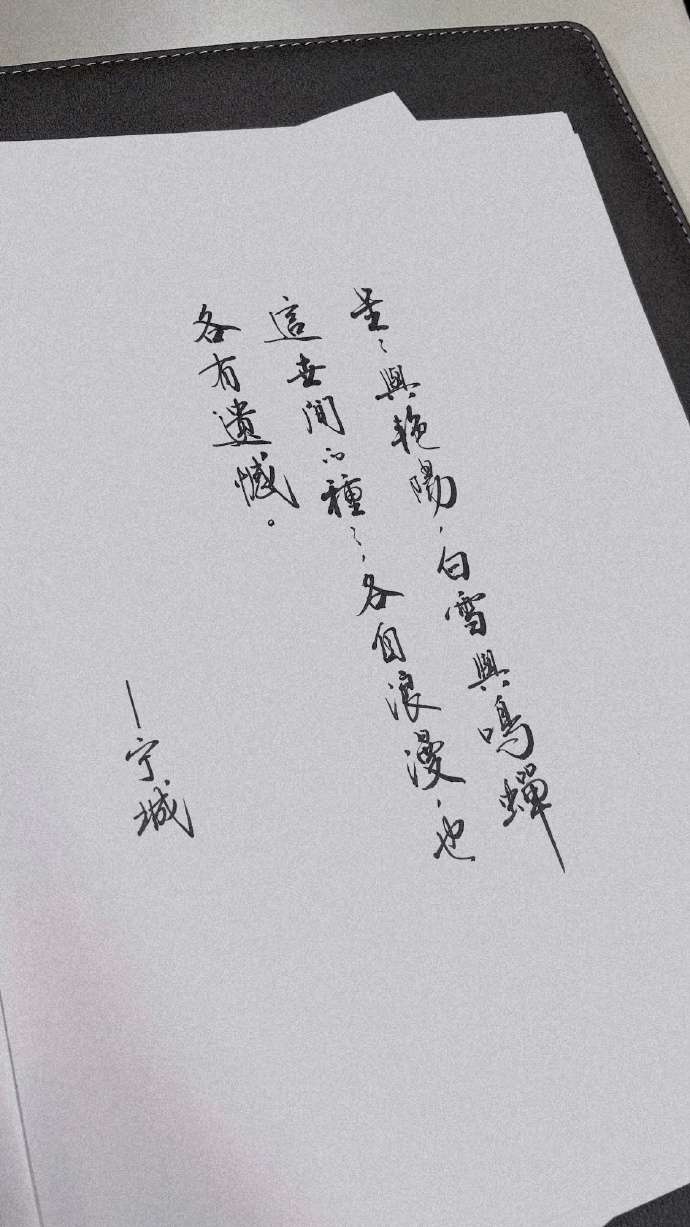 星々與艷陽，白雪與鳴蟬
這世間的種々，各自浪漫，也
各有遺憾。
—宁城